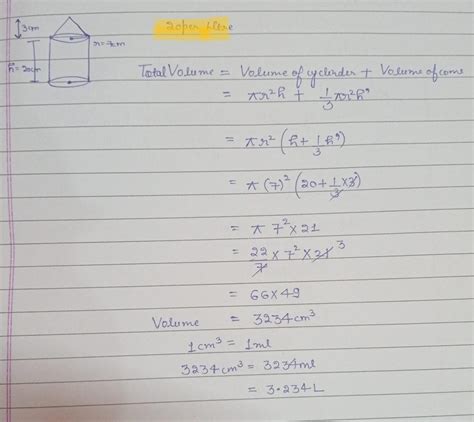 3cm
r=7cm
h=20cm
20per litre
Total Volume = Volume of cyclinder + Volume of cone
= πr²h + 1/3 πr²h'
= πr² (h + 1/3 h')
= π (7)² (20 + 1/3 × 3)
= π 7² × 21
= 22/7 × 7² × 21 3
= 66 × 49
Volume = 3234cm³
1cm³ = 1ml
3234cm³ = 3234ml
= 3.234L